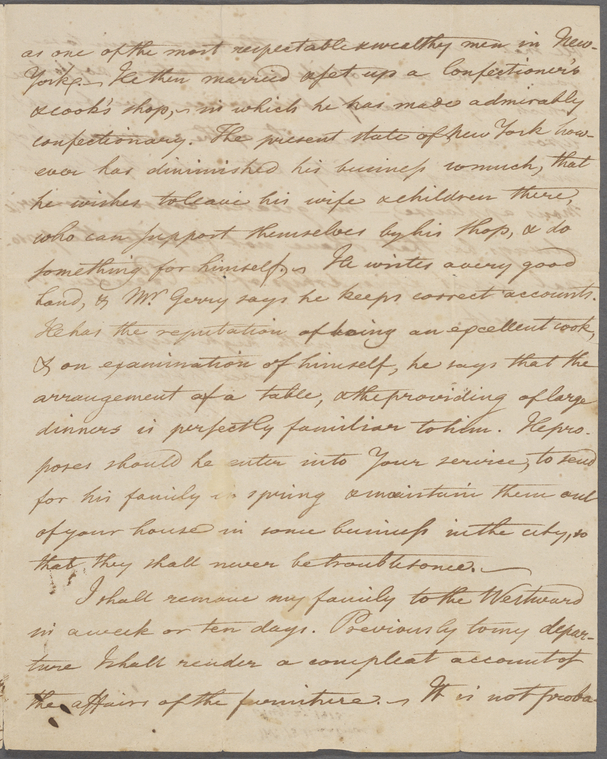 as one of the most respectable & wealthy men in New-
York. — He then married & set up a Confectioner's
& cook's shop, in which he has made admirably
confectionary. The present state of New York how-
ever has diminished his business so much, that
he wishes to leave his wife & children there,
who can support themselves by his shop, & do
something for himself. He writes a very good
hand, & Mr. Gerry says he keeps correct accounts.
He has the reputation of being an excellent cook,
& on examination of himself, he says that the
arrangement of a table, & the providing of large
dinners is perfectly familiar to him. He pro-
poses should he enter into Your service, to send
for his family in spring & maintain them out
of your house in some business in the city, so
that they shall never be troublesome. —
I shall remove my family to the Westward
in a week or ten days. Previously to my depar-
ture I shall render a compleat account of
the affairs of the furniture. — It is not proba-